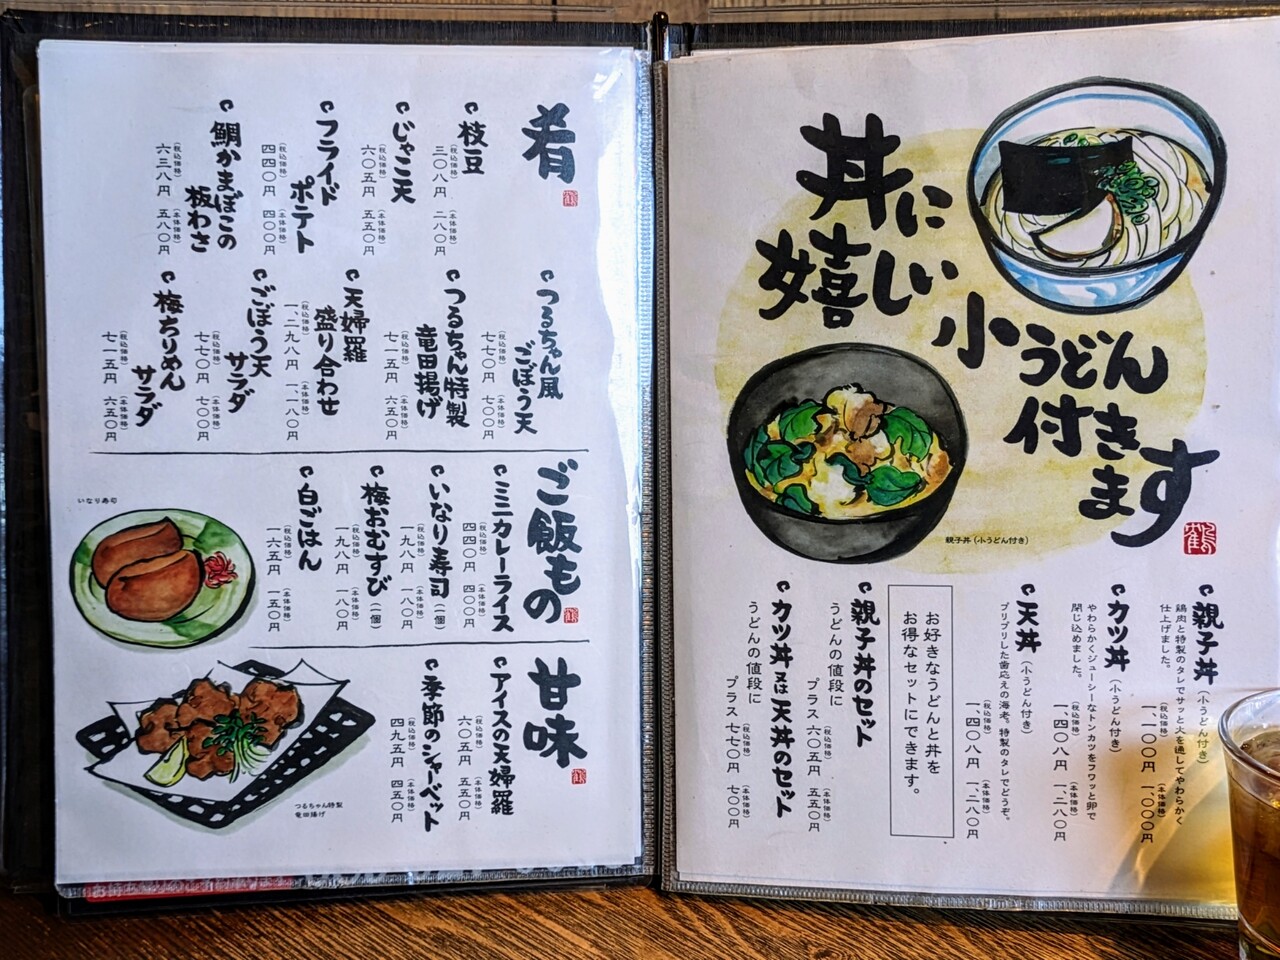 丼に
嬉しい
小うどん
付き
ます
鶴
親子丼（小うどん付き）
親子丼（小うどん付き）
鶏肉と特製のタレでサッと火を通してやわらかく
仕上げました。
（税込価格）一、一〇〇円（本体価格）一、〇〇〇円
カツ丼（小うどん付き）
やわらかくジューシーなトンカツをフワッと卵で
閉じ込めました。
（税込価格）一、四〇八円（本体価格）一、二八〇円
天丼（小うどん付き）
プリプリした歯応えの海老。特製のタレでどうぞ。
（税込価格）一、四〇八円（本体価格）一、二八〇円
お好きなうどんと丼を
お得なセットにできます。
親子丼のセット
うどんの値段に
プラス（税込価格）六〇五円（本体価格）五五〇円
カツ丼又は天丼のセット
うどんの値段に
プラス（税込価格）七七〇円（本体価格）七〇〇円
肴
枝豆
（税込価格）三〇八円（本体価格）二八〇円
じゃこ天
（税込価格）六〇五円（本体価格）五五〇円
フライド
ポテト
（税込価格）四四〇円（本体価格）四〇〇円
鯛かまぼこの
板わさ
（税込価格）六三八円（本体価格）五八〇円
つるちゃん風
ごぼう天
（税込価格）七七〇円（本体価格）七〇〇円
つるちゃん特製
竜田揚げ
（税込価格）七一五円（本体価格）六五〇円
天婦羅
盛り合わせ
（税込価格）一、二九八円（本体価格）一、一八〇円
ごぼう天
サラダ
（税込価格）七七〇円（本体価格）七〇〇円
梅ちりめん
サラダ
（税込価格）七一五円（本体価格）六五〇円
ご飯もの
ミニカレーライス
（税込価格）四四〇円（本体価格）四〇〇円
いなり寿司（一個）
（税込価格）一九八円（本体価格）一八〇円
梅おむすび（一個）
（税込価格）一九八円（本体価格）一八〇円
白ごはん
（税込価格）一六五円（本体価格）一五〇円
いなり寿司
甘味
アイスの天婦羅
（税込価格）六〇五円（本体価格）五五〇円
季節のシャーベット
（税込価格）四九五円（本体価格）四五〇円
つるちゃん特製
竜田揚げ